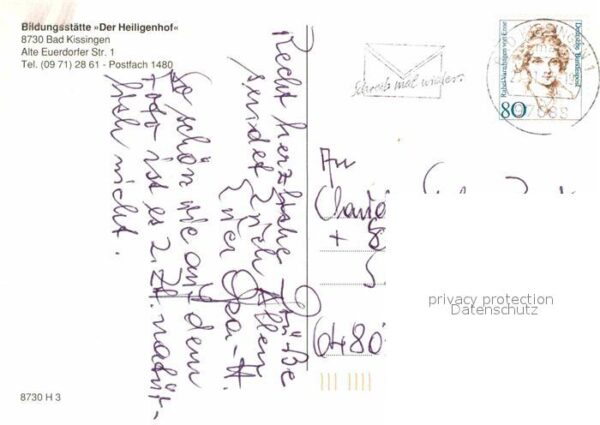 Bildungsstätte »Der Heiligenhof«
8730 Bad Kissingen
Alte Euerdorfer Str. 1
Tel. (09 71) 28 61 - Postfach 1480
Recht herzliche Grüße
sendet Euch Allen
Euer Opa - H.
So schön wie auf dem
Foto ist es z. Zt. natür-
lich nicht.
Schreib mal wieder.
Rahel Varnhagen von Ense
Deutsche Bundespost
80
An
+
6480
privacy protection
Datenschutz
8730 H 3